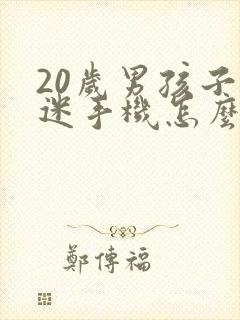 20歲男孩子
迷手機怎麼
鄭傳福